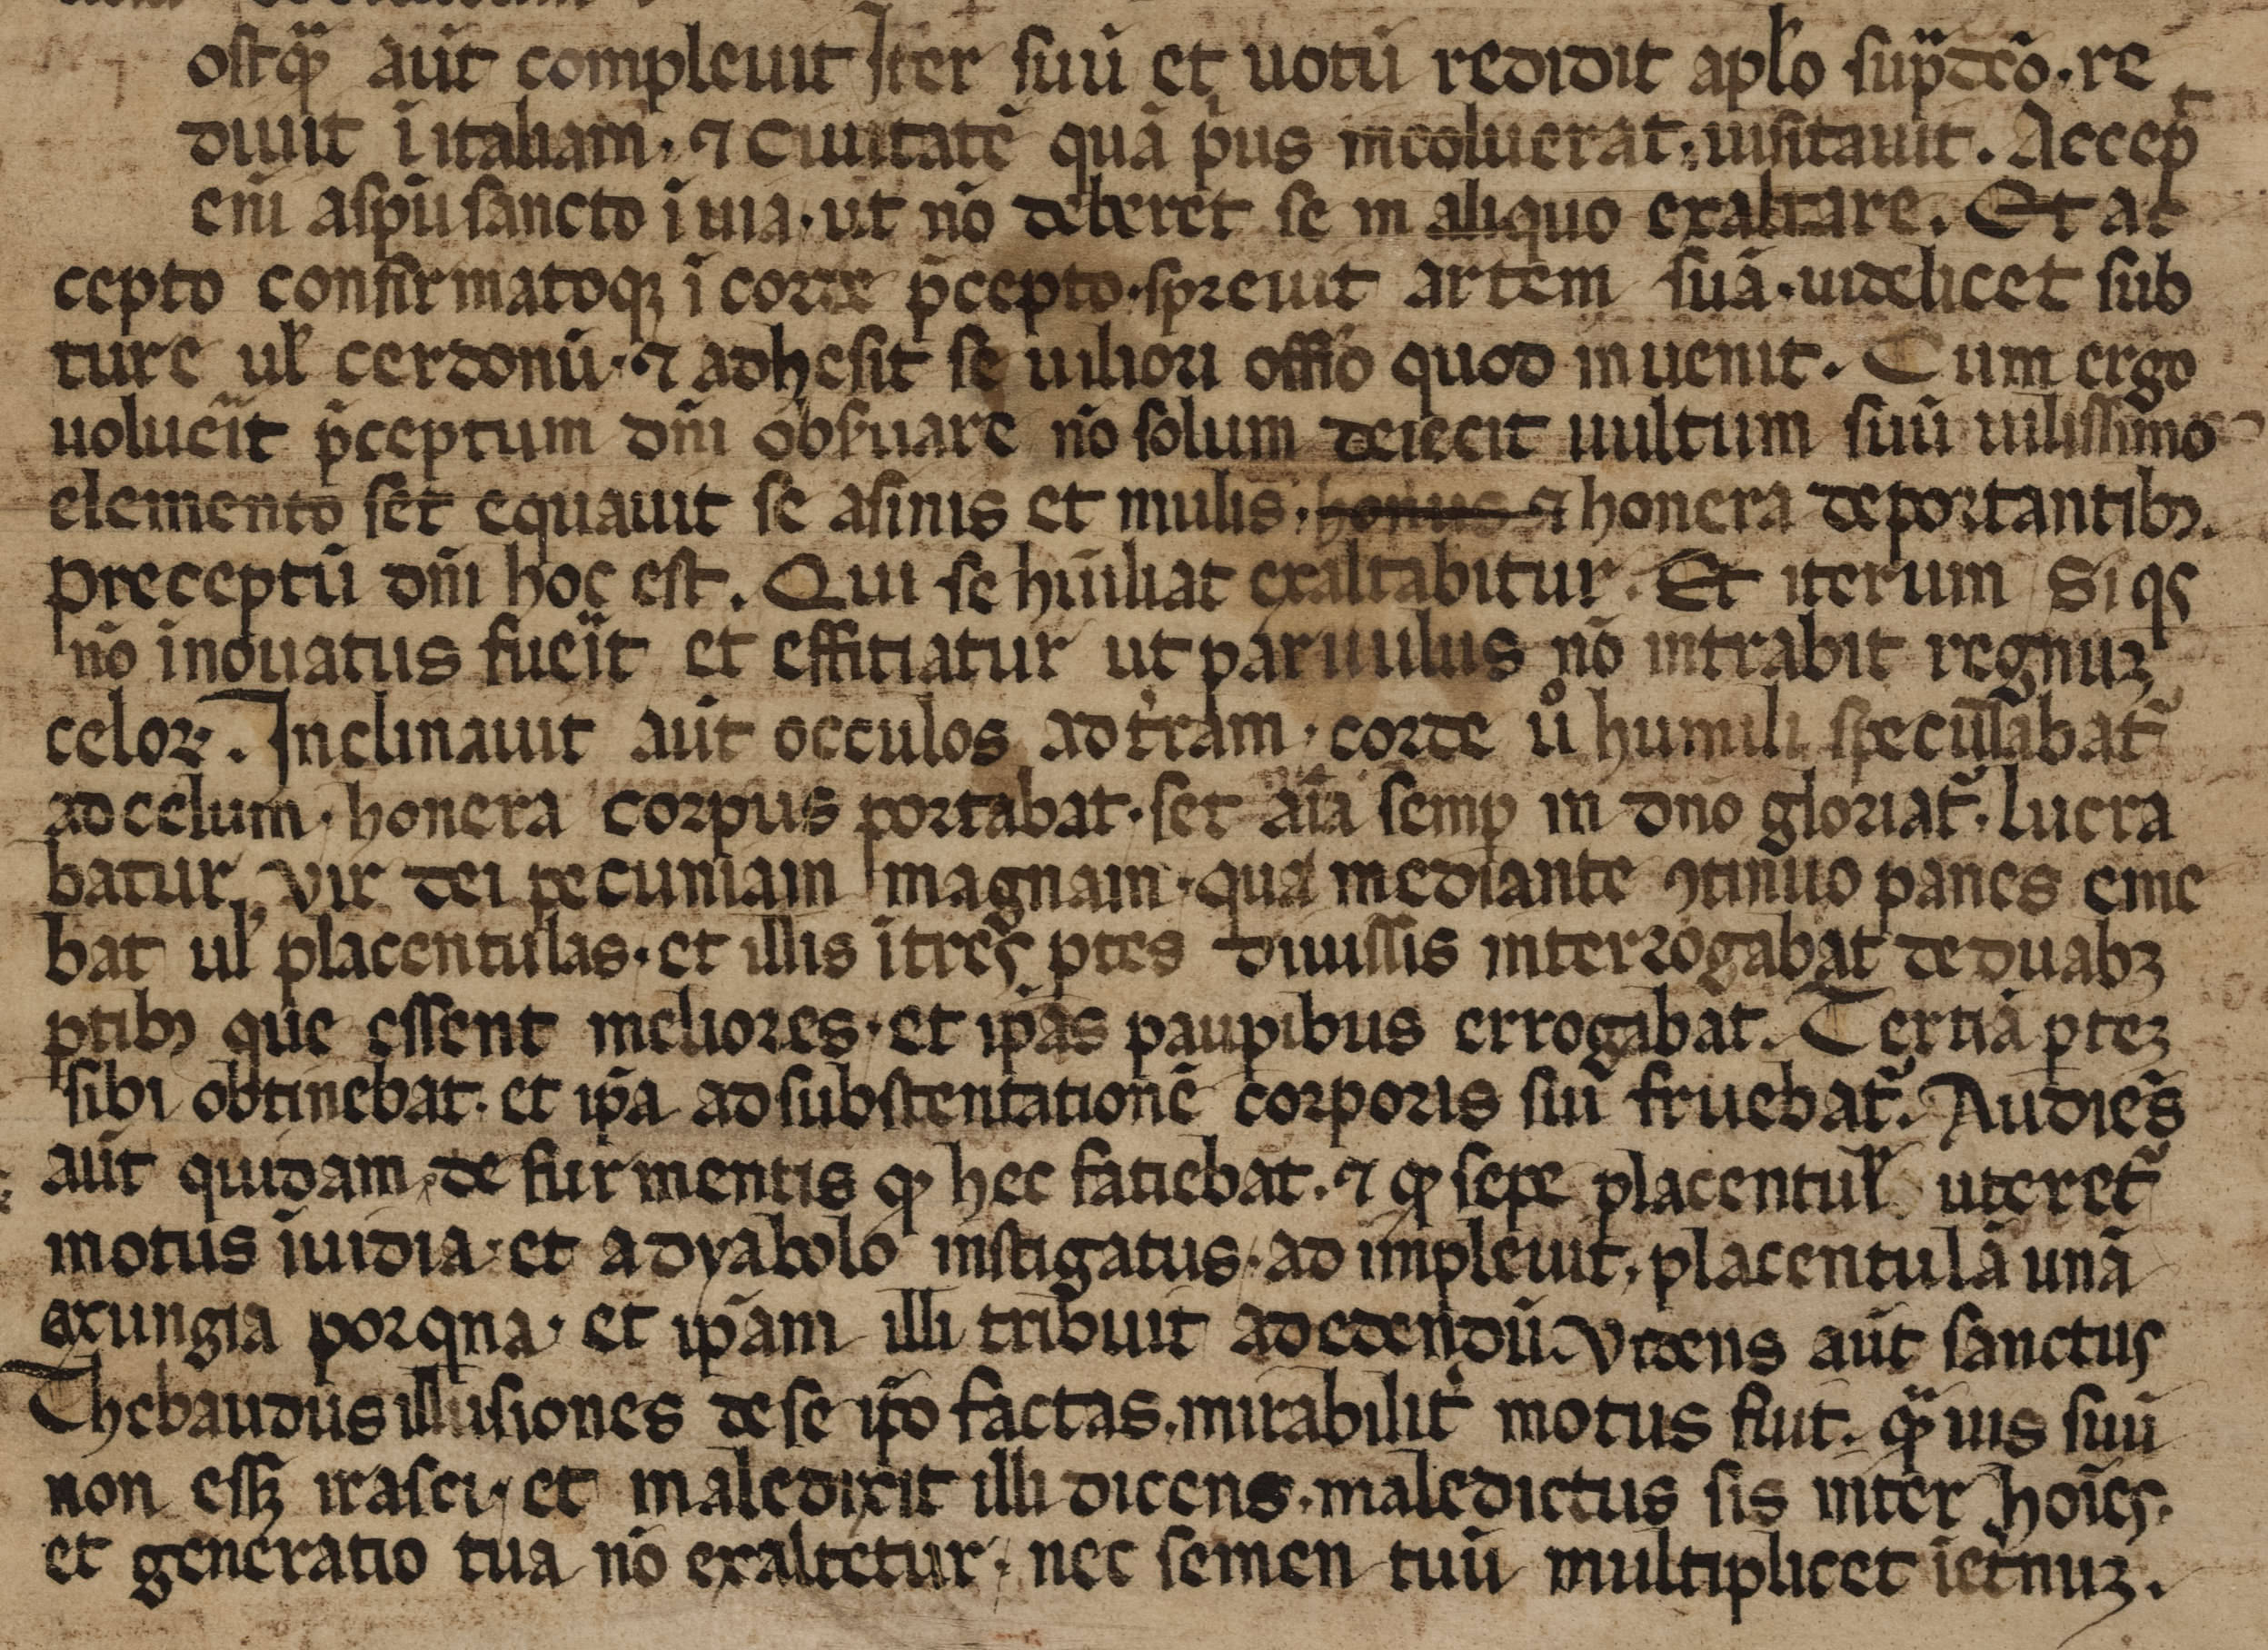 ostqᷓ aūt compleuit Iter suū et uotū redidit apl'o sup̄dc̄o · re
diuit ī italiam · ⁊ ciuitatē quā p̍us incoluerat · uisitauit . Accep̄t
eni̅ aspū sancto ī uia · ut nō deberet se in aliquo exaltare . Et ac
cepto confirmatoqꝫ ī corde p̄cepto · spreuit artem suā · uidelicet sub
ture ul' cerdonū · ⁊ adhesit se uiliori offi̅o quod inuenit . Cum ergo
uolueı̅t p̄ceptum dn̄i obs̄uare nō solum deiecit uultum suū uilissimo
elemento set equauit se asinis et mulis · honus ⁊ honera deportantibꝰ .
Preceptū dn̄i hoc est . Qui se hūiliat exaltabitur . Et iterum Si qs
nō inouatus fueı̅t et effitiatur ut paruulus nō intrabit regnuꝫ
celoꝝ . Inclinauit aūt occulos ad tr̄am · corde uͦ humili speculabat᷑
ad celum · honera corpus portabat · set aı̅a semꝑ in dn̄o gloriat᷑ . lucra
batur vir dei pecuniam magnam · qua mediante ꝯtinuo panes eme
bat ul' placentulas · et illis ī tres ꝑtes diuissis interrogabat de duabꝫ
ꝑtibꝰ que essent meliores · et ip̄as pauꝑibus errogabat . Tertiā ꝑteꝫ
sibi obtinebat · et ip̄a ad substentationē corporis sui fruebat᷑ . Audiēs
aūt quidam de furmentis ꝙ hec fatiebat . ⁊ ꝙ sepe placentul' uteret᷑
motus īuidia · et a dyabolo instigatus · ad impleuit · placentulā unā
exungia porqna · et ip̄am illi tribuit ad edendū . Videns aūt sanctus
Thebaudus illusiones de se ip̄o factas · mirabilit̍ motus fuit . qᷓuis suū
non essꝫ irasci · et maledixit illi dicens · maledictus sis inter hoīes ·
et generatio tua nō exaltetur · nec semen tuū multiplicet īet̍nuꝫ .